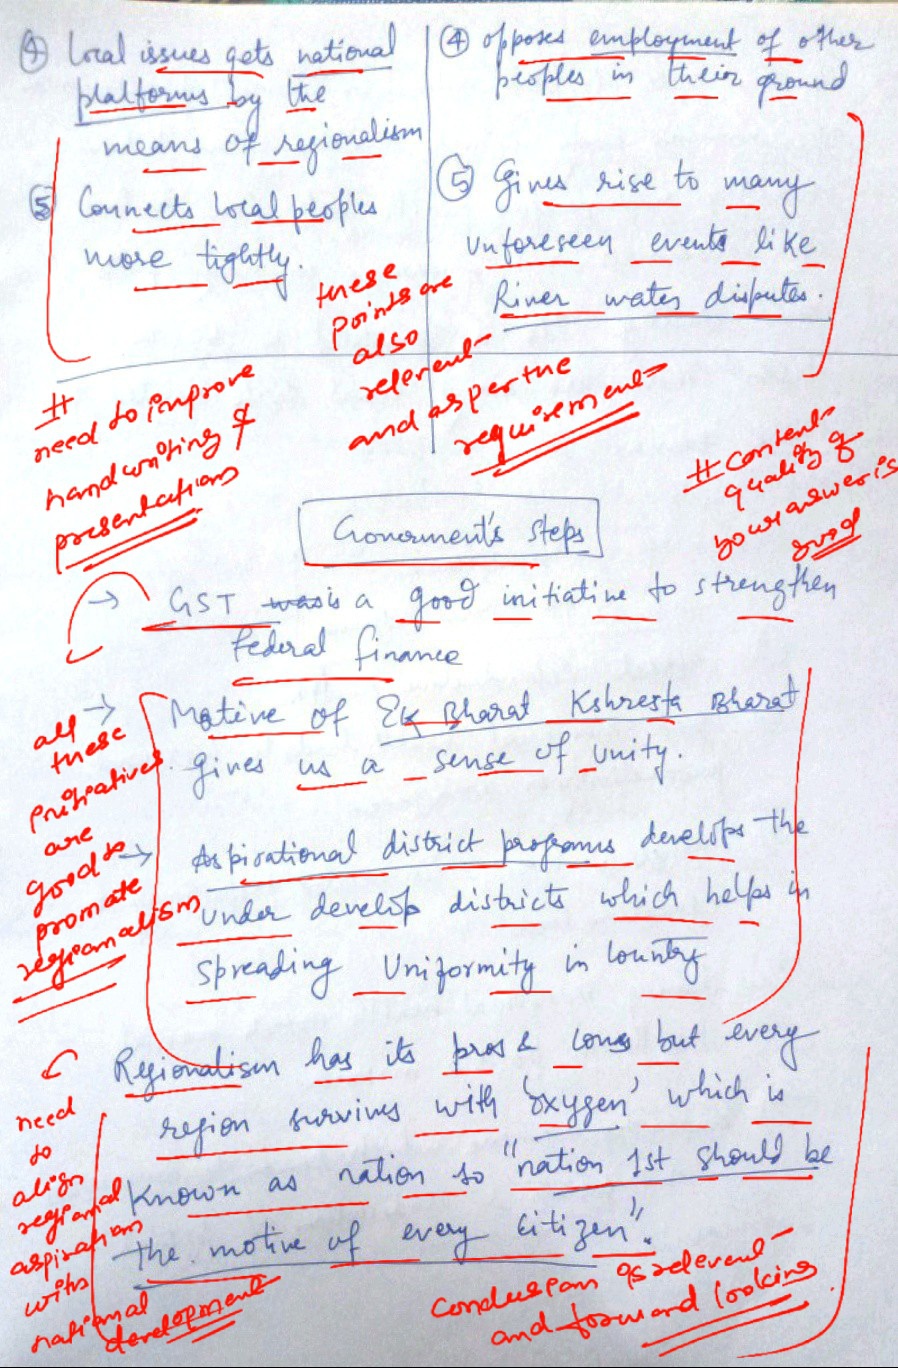 ④ Local issues gets national
platforms by the
means of regionalism
⑤ Connects local peoples
more tightly.
④ opposes employment of other
peoples in their ground
⑤ Gives rise to many
unforeseen events like
River water disputes.
these
points are
also
relevent
and as per the
requirement
#
need to improve
handwriting &
presentation
# content
quality of
your answer is
good
Government's steps
→ GST was is a good initiative to strengthen
federal finance
→ Motive of Ek Bharat Kshresta Bharat
gives us a sense of unity.
→ Aspirational district programs develops the
under develop districts which helps in
spreading Uniformity in country
all
these
initiatives
are
good to
promote
regionalism
Regionalism has its pros & cons but every
region survives with 'oxygen' which is
known as nation so "nation 1st should be
the motive of every citizen".
need
to
align
regional
aspiration
with
national
development
conclusion is relevent
and forward looking